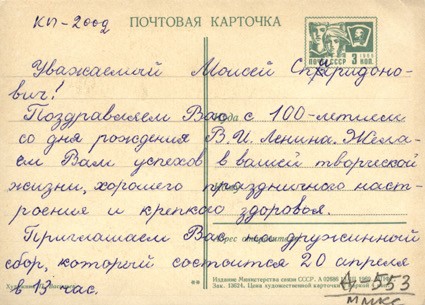 КП-2002
ПОЧТОВАЯ КАРТОЧКА
ПОЧТА СССР 3 КОП.
Уважаемый Моисей Спиридоно-
вич!
Поздравляем Вас с 100-летием
со дня рождения В.И. Ленина. Жела-
ем Вам успехов в вашей творческой
жизни, хорошего праздничного наст-
роения и крепкого здоровья.
Приглашаем Вас на дружинный
сбор, который состоится 20 апреля
в 13 час.
Издание Министерства связи СССР.
Зак. 13024. Цена с художественной маркой 4
А 553
ММКС